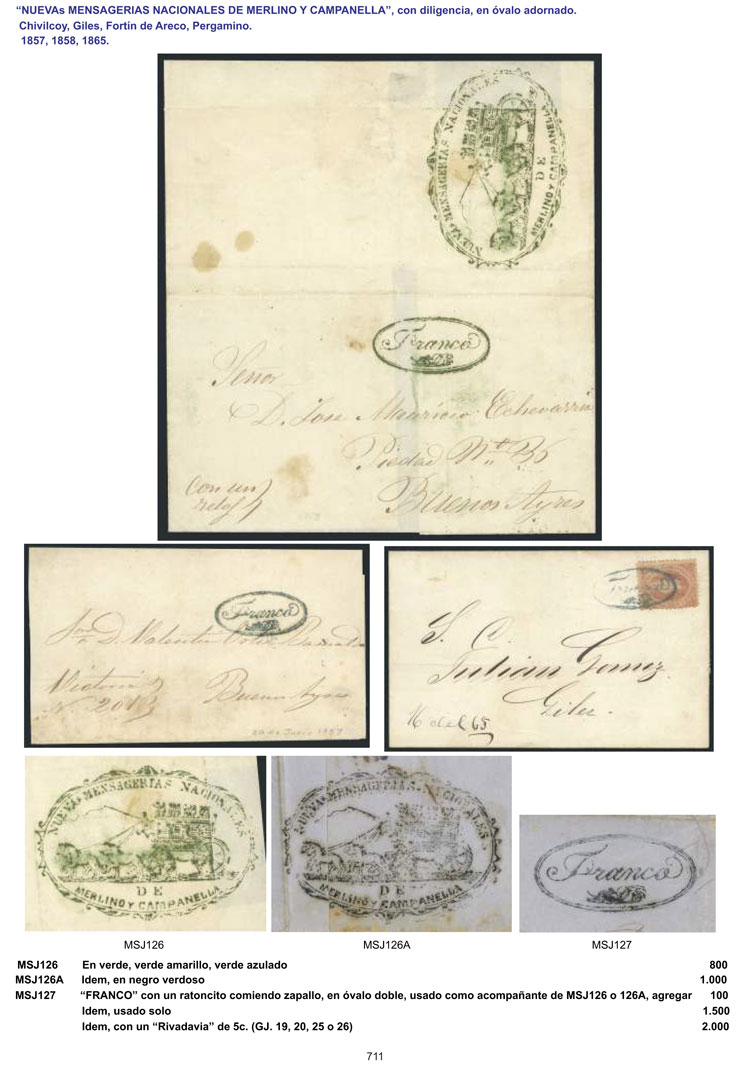 “NUEVAs MENSAGERIAS NACIONALES DE MERLINO Y CAMPANELLA”, con diligencia, en óvalo adornado.
Chivilcoy, Giles, Fortín de Areco, Pergamino.
1857, 1858, 1865.
NUEVAs MENSAGERIAS NACIONALES
DE
MERLINO Y CAMPANELLA
Franco
Señor
D. Jose Mauricio Echevarria
Piedad
Buenos Ayres
Con un
reloj
Franco
D. Valentin
Victoria
Buenos Ayres
S. C.
Julian Gomez
Giles.
16 del 65
NUEVAs MENSAGERIAS NACIONALES
DE
MERLINO Y CAMPANELLA
NUEVAs MENSAGERIAS NACIONALES
DE
MERLINO Y CAMPANELLA
Franco
MSJ126
MSJ126A
MSJ127
MSJ126 En verde, verde amarillo, verde azulado 800
MSJ126A Idem, en negro verdoso 1.000
MSJ127 “FRANCO” con un ratoncito comiendo zapallo, en óvalo doble, usado como acompañante de MSJ126 o 126A, agregar 100
Idem, usado solo 1.500
Idem, con un “Rivadavia” de 5c. (GJ. 19, 20, 25 o 26) 2.000
711